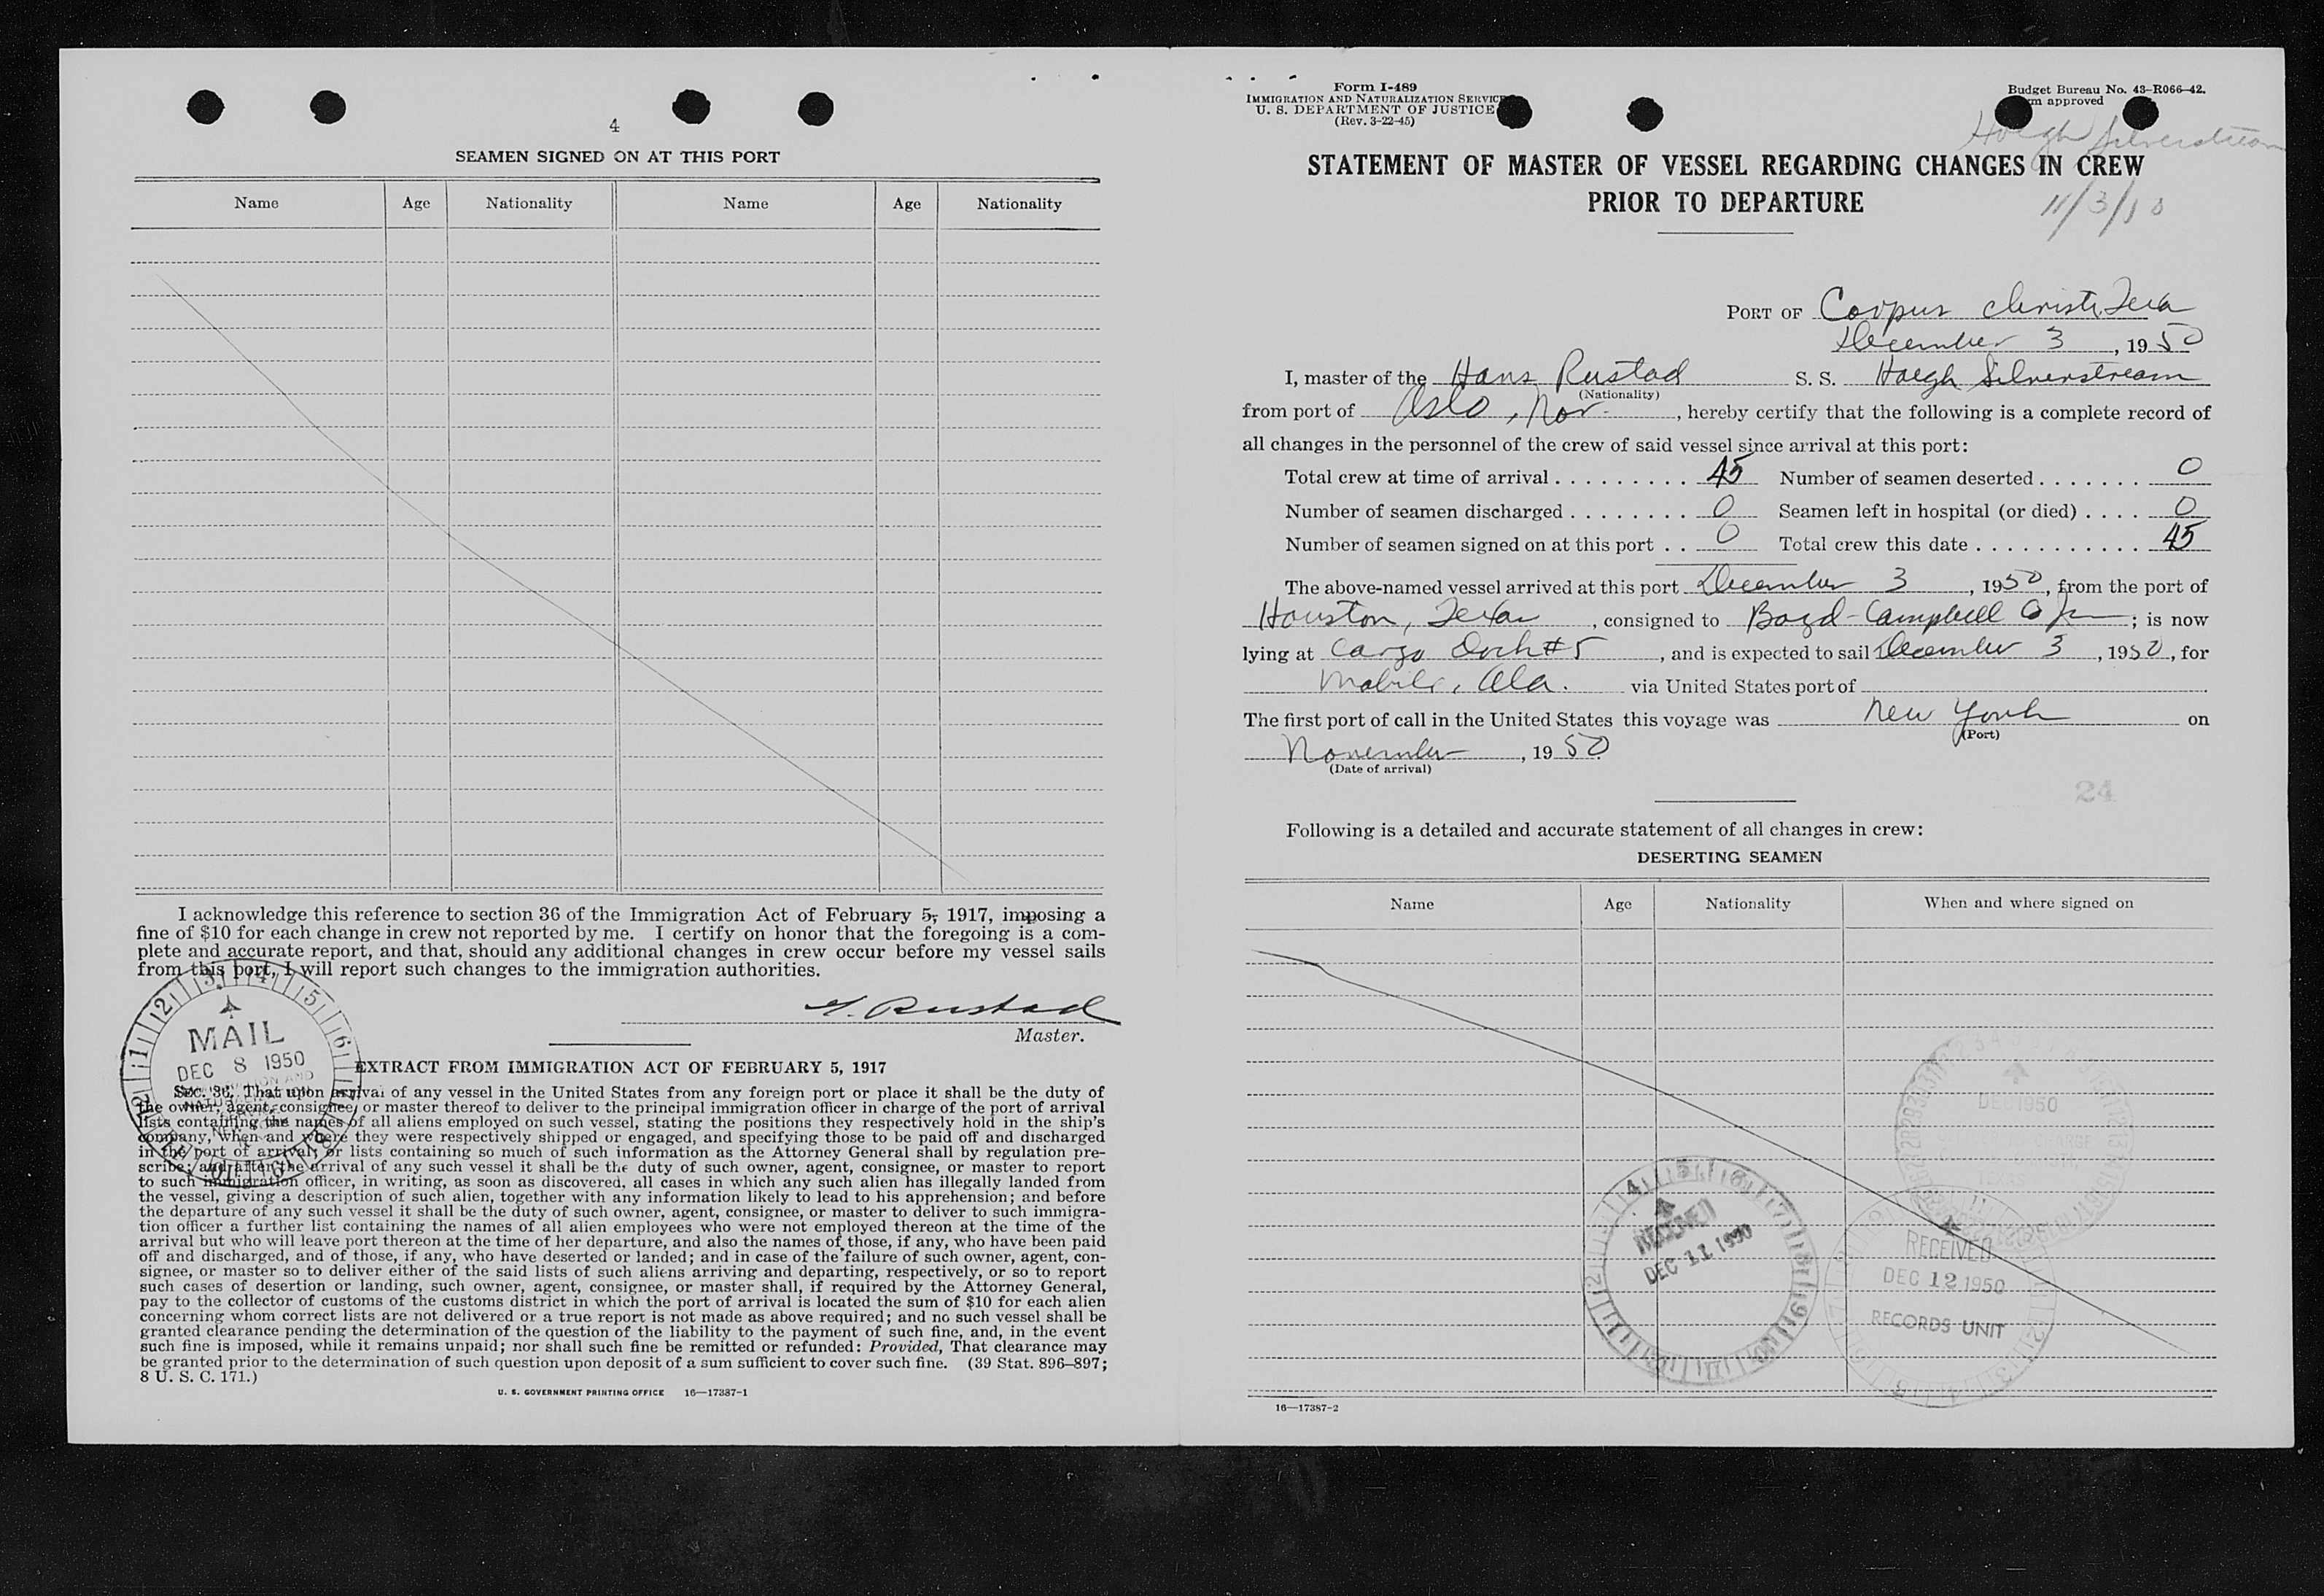 4
SEAMEN SIGNED ON AT THIS PORT
Name Age Nationality Name Age Nationality
I acknowledge this reference to section 36 of the Immigration Act of February 5, 1917, imposing a
fine of $10 for each change in crew not reported by me. I certify on honor that the foregoing is a com-
plete and accurate report, and that, should any additional changes in crew occur before my vessel sails
from this port, I will report such changes to the immigration authorities.
H. Rustad
Master.
MAIL
DEC 8 1950
EXTRACT FROM IMMIGRATION ACT OF FEBRUARY 5, 1917
SEC. 36. That upon arrival of any vessel in the United States from any foreign port or place it shall be the duty of
the owner, agent, consignee, or master thereof to deliver to the principal immigration officer in charge of the port of arrival
lists containing the names of all aliens employed on such vessel, stating the positions they respectively hold in the ship's
company, when and where they were respectively shipped or engaged, and specifying those to be paid off and discharged
in the port of arrival; or lists containing so much of such information as the Attorney General shall by regulation pre-
scribe; and after the arrival of any such vessel it shall be the duty of such owner, agent, consignee, or master to report
to such immigration officer, in writing, as soon as discovered, all cases in which any such alien has illegally landed from
the vessel, giving a description of such alien, together with any information likely to lead to his apprehension; and before
the departure of any such vessel it shall be the duty of such owner, agent, consignee, or master to deliver to such immigra-
tion officer a further list containing the names of all alien employees who were not employed thereon at the time of the
arrival but who will leave port thereon at the time of her departure, and also the names of those, if any, who have been paid
off and discharged, and of those, if any, who have deserted or landed; and in case of the failure of such owner, agent, con-
signee, or master so to deliver either of the said lists of such aliens arriving and departing, respectively, or so to report
such cases of desertion or landing, such owner, agent, consignee, or master shall, if required by the Attorney General,
pay to the collector of customs of the customs district in which the port of arrival is located the sum of $10 for each alien
concerning whom correct lists are not delivered or a true report is not made as above required; and no such vessel shall be
granted clearance pending the determination of the question of the liability to the payment of such fine, and, in the event
such fine is imposed, while it remains unpaid; nor shall such fine be remitted or refunded: Provided, That clearance may
be granted prior to the determination of such question upon deposit of a sum sufficient to cover such fine. (39 Stat. 896–897;
8 U. S. C. 171.)
U. S. GOVERNMENT PRINTING OFFICE 16—17387-1
Form I-489
IMMIGRATION AND NATURALIZATION SERVICE
U. S. DEPARTMENT OF JUSTICE
(Rev. 3-22-45)
Budget Bureau No. 43-R066-42.
approved
Hoegh Silverstream
STATEMENT OF MASTER OF VESSEL REGARDING CHANGES IN CREW
PRIOR TO DEPARTURE
PORT OF Corpus Christi, Texa
December 3, 1950
I, master of the Hans Rustad S. S. Hoegh Silverstream
(Nationality)
from port of Oslo, Nor., hereby certify that the following is a complete record of
all changes in the personnel of the crew of said vessel since arrival at this port:
Total crew at time of arrival . . . . . . . . . 45 Number of seamen deserted . . . . . . . 0
Number of seamen discharged . . . . . . . . 0 Seamen left in hospital (or died) . . . . 0
Number of seamen signed on at this port . . 0 Total crew this date . . . . . . . . . . . 45
The above-named vessel arrived at this port December 3, 1950, from the port of
Houston, Texas, consigned to Boyd-Campbell Co; is now
lying at Cargo Dock #5, and is expected to sail December 3, 1950, for
Mobile, Ala. via United States port of
The first port of call in the United States this voyage was New York on
(Port)
November, 1950
(Date of arrival)
24
Following is a detailed and accurate statement of all changes in crew:
DESERTING SEAMEN
Name Age Nationality When and where signed on
DEC 1950
TEXAS
RECEIVED
DEC 11 1950
RECEIVED
DEC 12 1950
RECORDS UNIT
16—17387-2